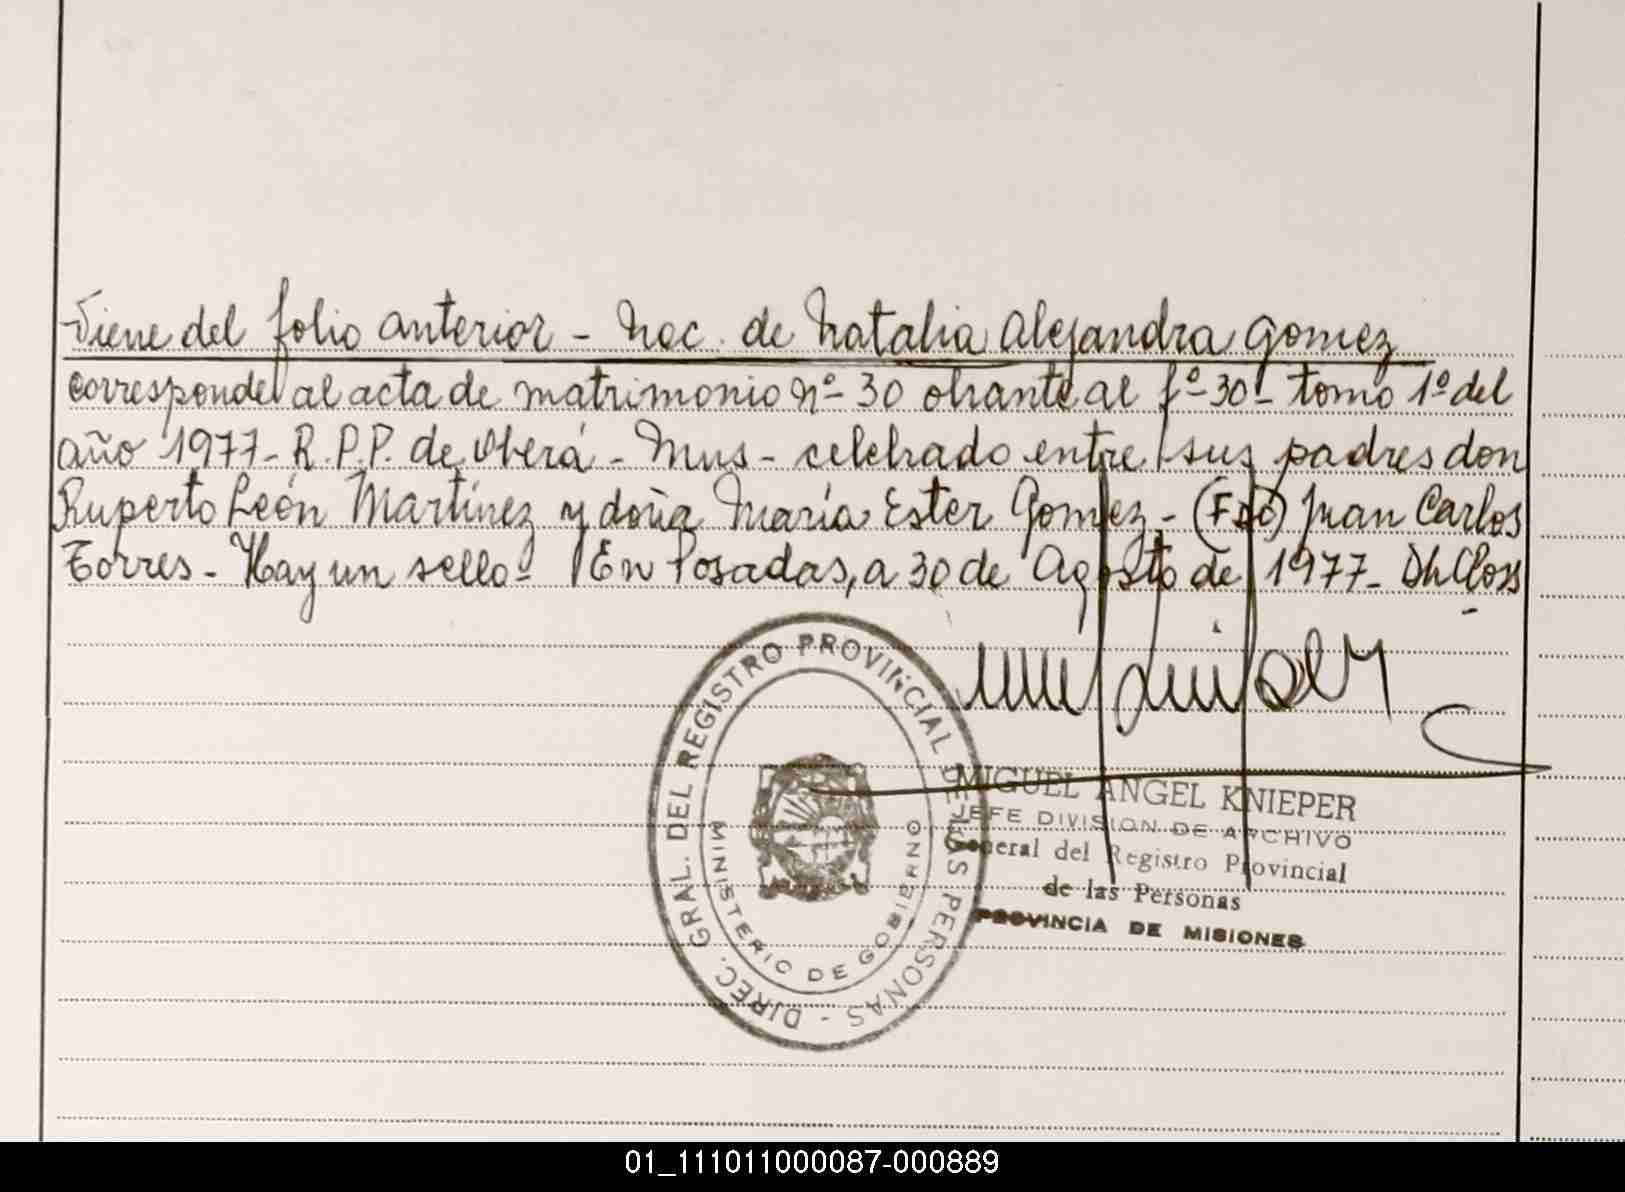 Viene del folio anterior - Nac. de Natalia Alejandra Gomez
corresponde al acta de matrimonio nº 30 obrante al fº 30 - tomo 1º del
año 1977 - R.P.P. de Oberá - Mnes - celebrado entre sus padres don
Ruperto León Martínez y doña María Ester Gomez - (Fdo) Juan Carlos
Torres - Hay un sello - En Posadas, a 30 de Agosto de 1977 -
DIREC. GRAL. DEL REGISTRO PROVINCIAL DE LAS PERSONAS -
MINISTERIO DE GOBIERNO
MIGUEL ANGEL KNIEPER
JEFE DIVISION DE ARCHIVO
General del Registro Provincial
de las Personas
PROVINCIA DE MISIONES
01_111011000087-000889